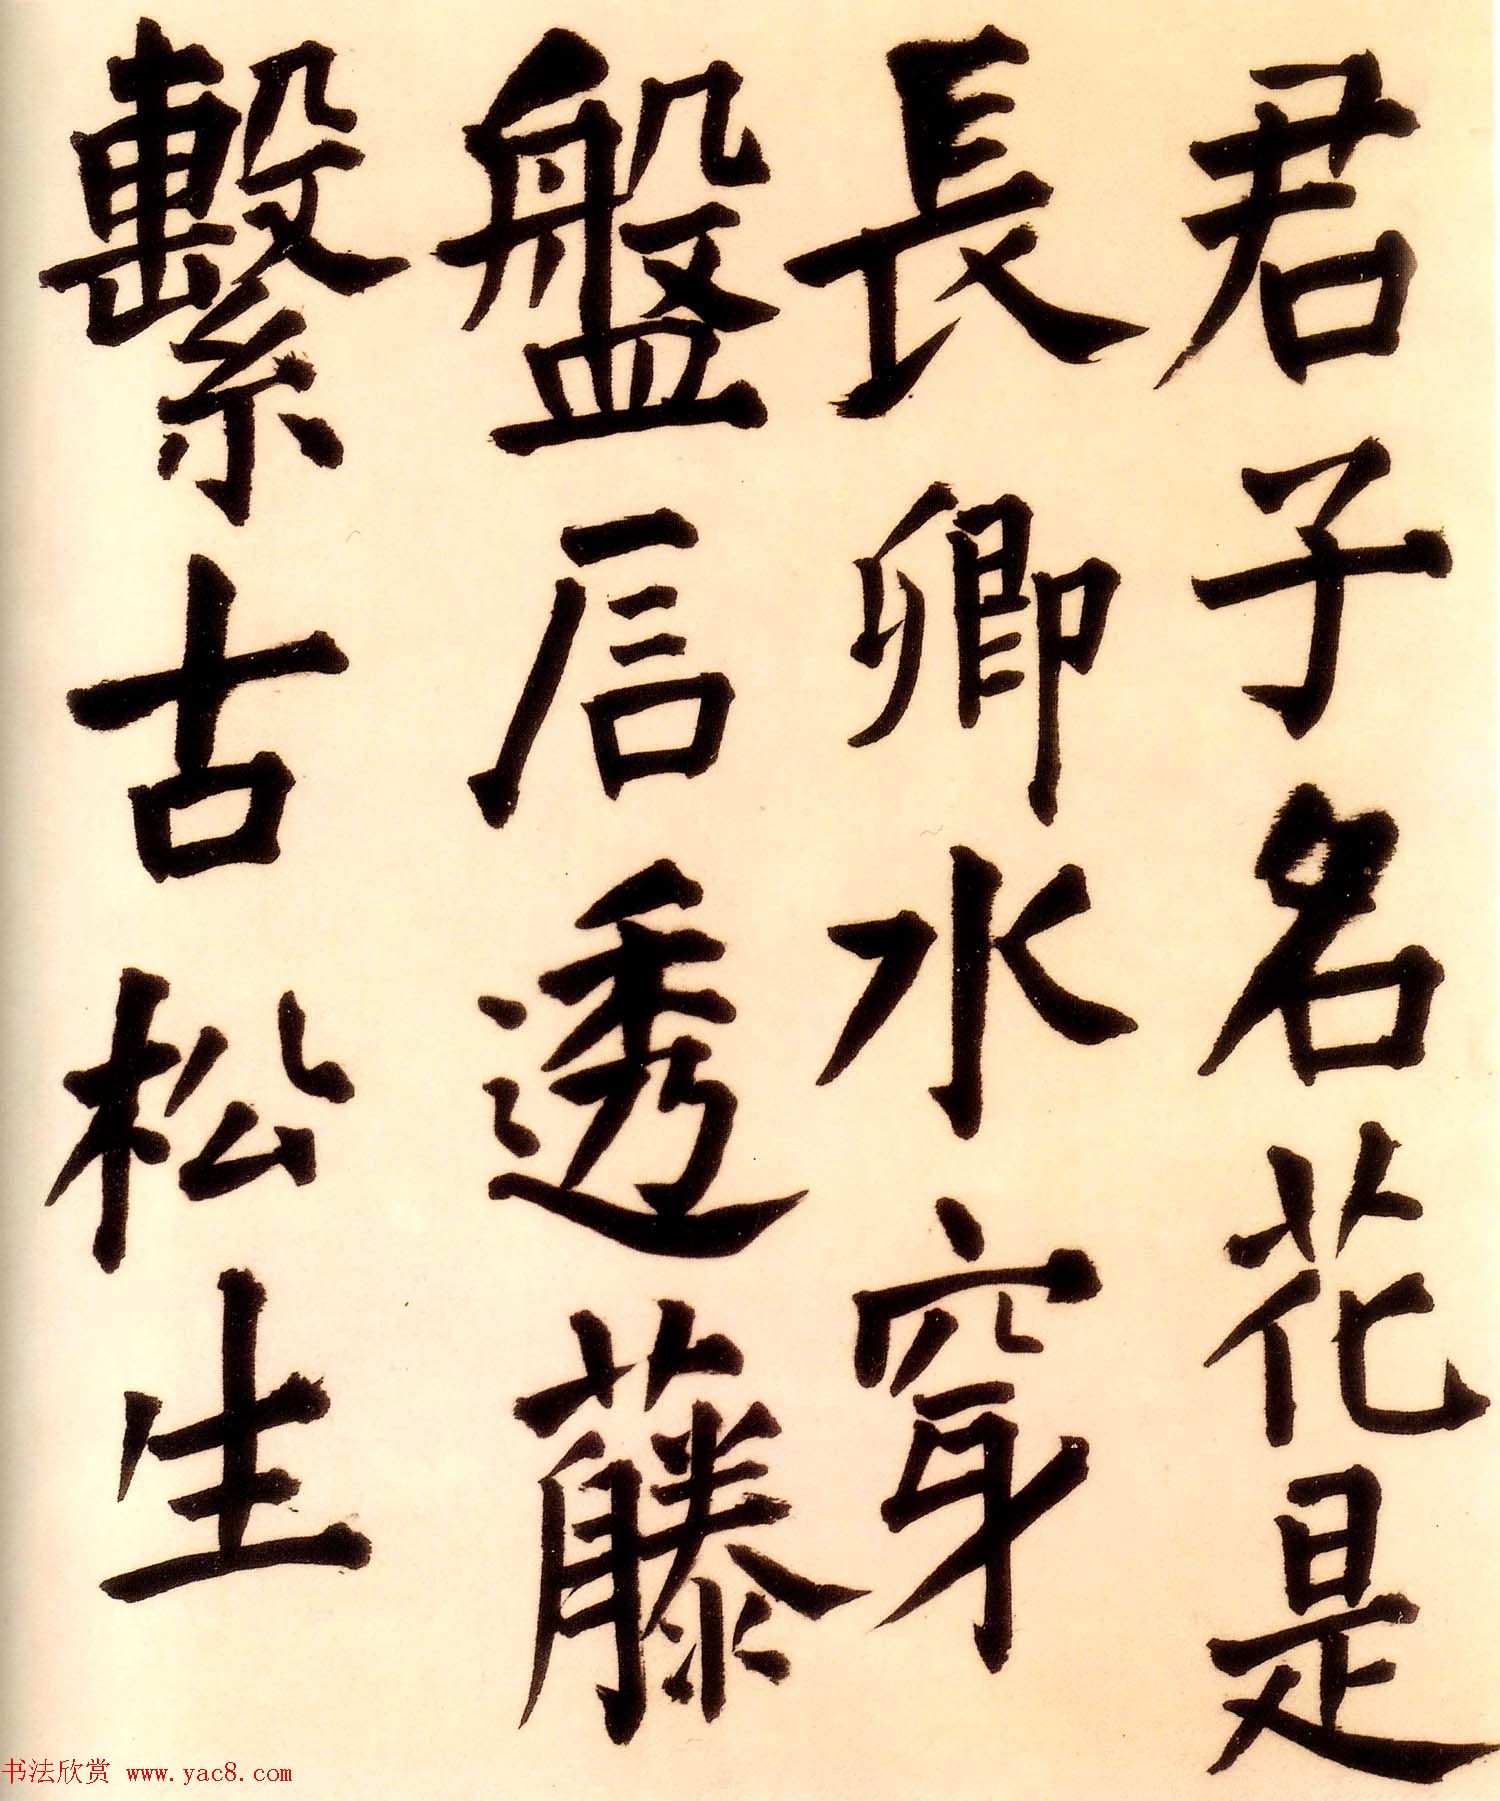 君子名花是
長卿水穿
盤石透藤
繫古松生
书法欣赏 www.yac8.com